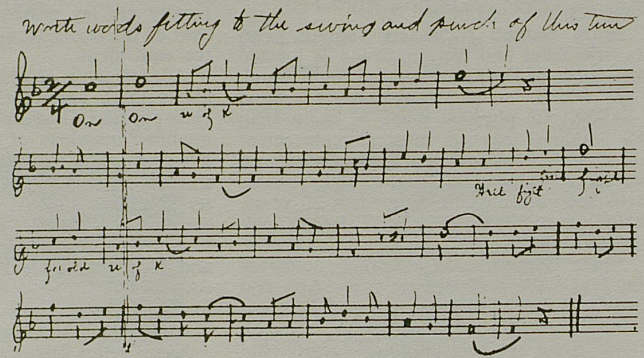 Write words fitting to the swing and punch of this tune
2/4
On On U of K
Fite fight
U of K